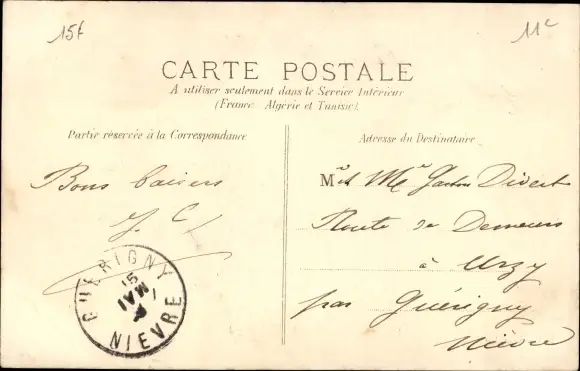 15f
11c
CARTE POSTALE
A utiliser seulement dans le Service Intérieur
(France, Algérie et Tunisie).
Partie réservée à la Correspondance
Adresse du Destinataire
Bons baisers
M et Me Gaston Divert
Route de
à Urzy
par Guérigny
Nièvre
GUERIGNY
15
MAI
NIEVRE